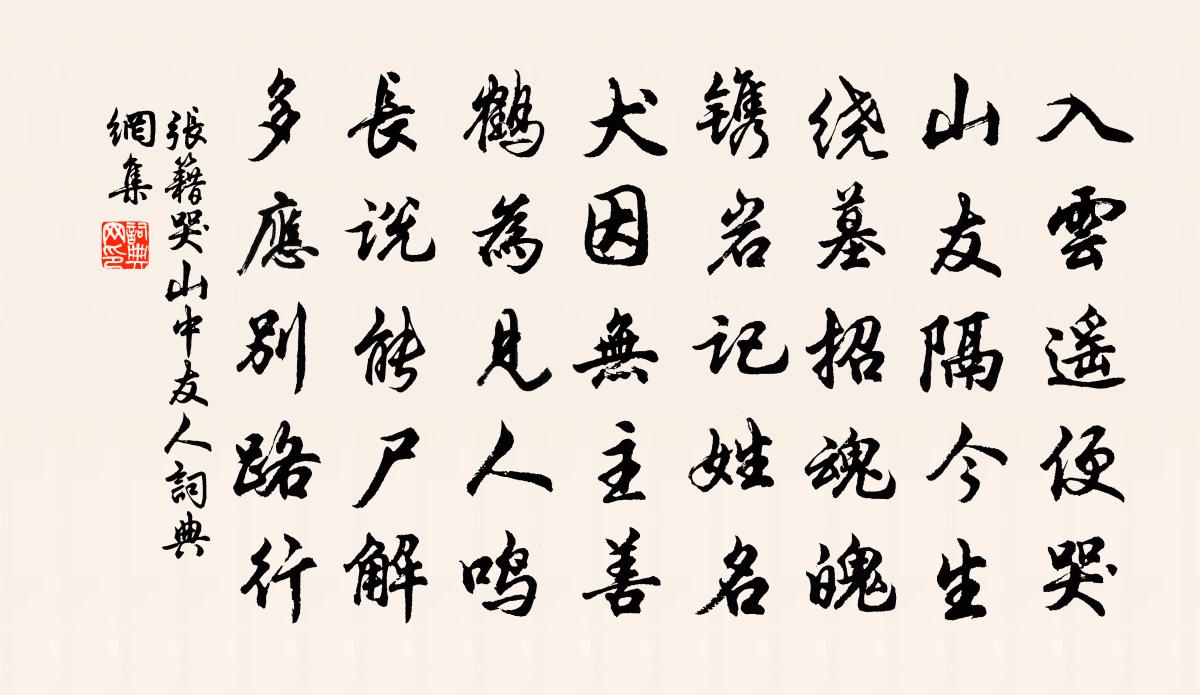 入雲遥便哭
山友隔今生
绕墓招魂魄
镌岩记姓名
犬因無主善
鶴為見人鸣
長说能尸解
多應别路行
張籍哭山中友人詞典
網集
詞典
网印